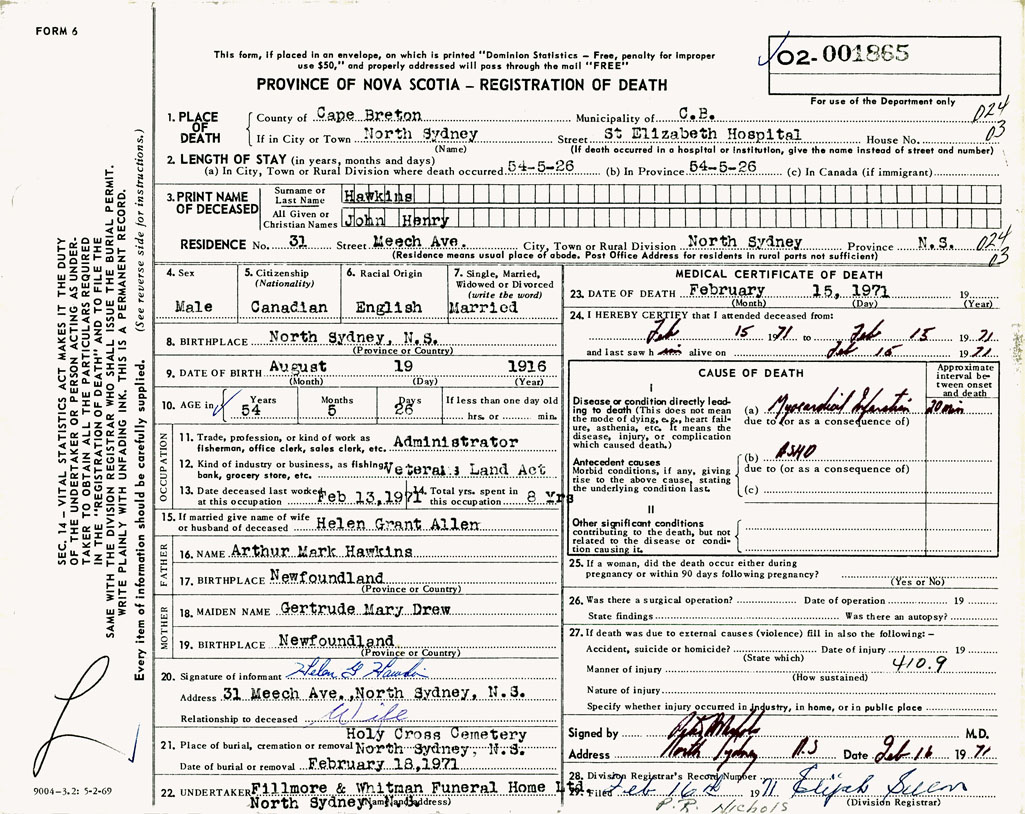 FORM 6
This form, if placed in an envelope, on which is printed "Dominion Statistics – Free, penalty for improper
use $50," and properly addressed will pass through the mail "FREE"
02-001865
PROVINCE OF NOVA SCOTIA – REGISTRATION OF DEATH
For use of the Department only
1. PLACE OF DEATH County of Cape Breton Municipality of C.B. 024
If in City or Town North Sydney Street St Elizabeth Hospital House No. 03
(Name) (If death occurred in a hospital or institution, give the name instead of street and number)
2. LENGTH OF STAY (in years, months and days)
(a) In City, Town or Rural Division where death occurred 54-5-26 (b) In Province 54-5-26 (c) In Canada (if immigrant)
3. PRINT NAME OF DECEASED Surname or Last Name Hawkins
All Given or Christian Names John Henry
RESIDENCE No. 31 Street Meech Ave. City, Town or Rural Division North Sydney Province N.S. 024
(Residence means usual place of abode. Post Office Address for residents in rural parts not sufficient) 03
4. Sex Male
5. Citizenship (Nationality) Canadian
6. Racial Origin English
7. Single, Married, Widowed or Divorced (write the word) Married
8. BIRTHPLACE North Sydney, N.S.
(Province or Country)
9. DATE OF BIRTH August 19 1916
(Month) (Day) (Year)
10. AGE in Years Months Days If less than one day old
54 5 26 hrs. or min.
OCCUPATION
11. Trade, profession, or kind of work as Administrator
fisherman, office clerk, sales clerk, etc.
12. Kind of industry or business, as fishing, Veterans Land Act
bank, grocery store, etc.
13. Date deceased last worked at this occupation Feb 13,1971
14. Total yrs. spent in this occupation 8 Yrs
15. If married give name of wife or husband of deceased Helen Grant Allen
FATHER
16. NAME Arthur Mark Hawkins
17. BIRTHPLACE Newfoundland
(Province or Country)
MOTHER
18. MAIDEN NAME Gertrude Mary Drew
19. BIRTHPLACE Newfoundland
(Province or Country)
20. Signature of informant Helen G Hawkins
Address 31 Meech Ave.,North Sydney, N.S.
Relationship to deceased Wife
21. Place of burial, cremation or removal Holy Cross Cemetery
North Sydney, N.S.
Date of burial or removal February 18,1971
22. UNDERTAKER Fillmore & Whitman Funeral Home Ltd.
North Sydney (Name and address)
MEDICAL CERTIFICATE OF DEATH
23. DATE OF DEATH February 15, 1971 19
(Month) (Day) (Year)
24. I HEREBY CERTIFY that I attended deceased from:
Feb 15 1971 to Feb 15 1971
and last saw him alive on Feb 15 1971
CAUSE OF DEATH
Approximate interval between onset and death
I
Disease or condition directly leading to death (This does not mean the mode of dying, e.g., heart failure, asthenia, etc. It means the disease, injury, or complication which caused death.)
(a) Myocardial Infarction 20 min
due to (or as a consequence of)
Antecedent causes
Morbid conditions, if any, giving rise to the above cause, stating the underlying condition last.
(b) ASHD
due to (or as a consequence of)
(c)
II
Other significant conditions
contributing to the death, but not related to the disease or condition causing it.
25. If a woman, did the death occur either during
pregnancy or within 90 days following pregnancy?
(Yes or No)
26. Was there a surgical operation? Date of operation 19
State findings Was there an autopsy?
27. If death was due to external causes (violence) fill in also the following: –
Accident, suicide or homicide? Date of injury 19
(State which) 410.9
Manner of injury
(How sustained)
Nature of injury
Specify whether injury occurred in industry, in home, or in public place
Signed by M.D.
Address North Sydney N.S Date Feb 16 1971
28. Division Registrar's Record Number
29. Filed Feb 16th 1971 Elijah
(Division Registrar)
P.R. NICHOLS
SEC. 14 – VITAL STATISTICS ACT MAKES IT THE DUTY
OF THE UNDERTAKER OR PERSON ACTING AS UNDER-
TAKER TO OBTAIN ALL THE PARTICULARS REQUIRED
IN THE "REGISTRATION OF DEATH" AND TO FILE THE
SAME WITH THE DIVISION REGISTRAR WHO SHALL ISSUE THE BURIAL PERMIT.
WRITE PLAINLY WITH UNFADING INK. THIS IS A PERMANENT RECORD.
Every item of information should be carefully supplied. (See reverse side for instructions.)
9004-3.2: 5-2-69